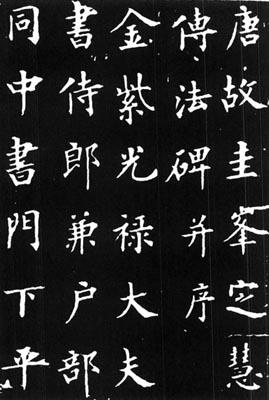 唐故圭峯定慧
傳法碑并序
金紫光禄大夫
書侍郎兼户部
同中書門下平